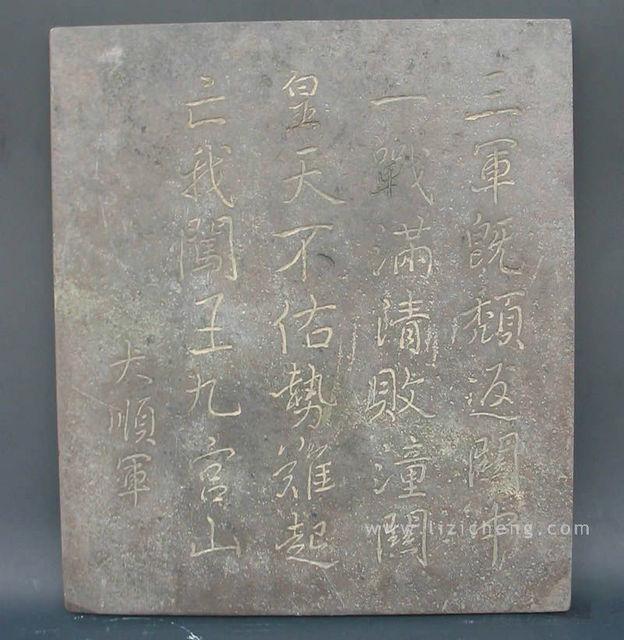 三軍既頹返關中
一戰滿清敗潼關
皇天不佑勢難起
亡我闖王九宮山
大順軍
www.lizicheng.com